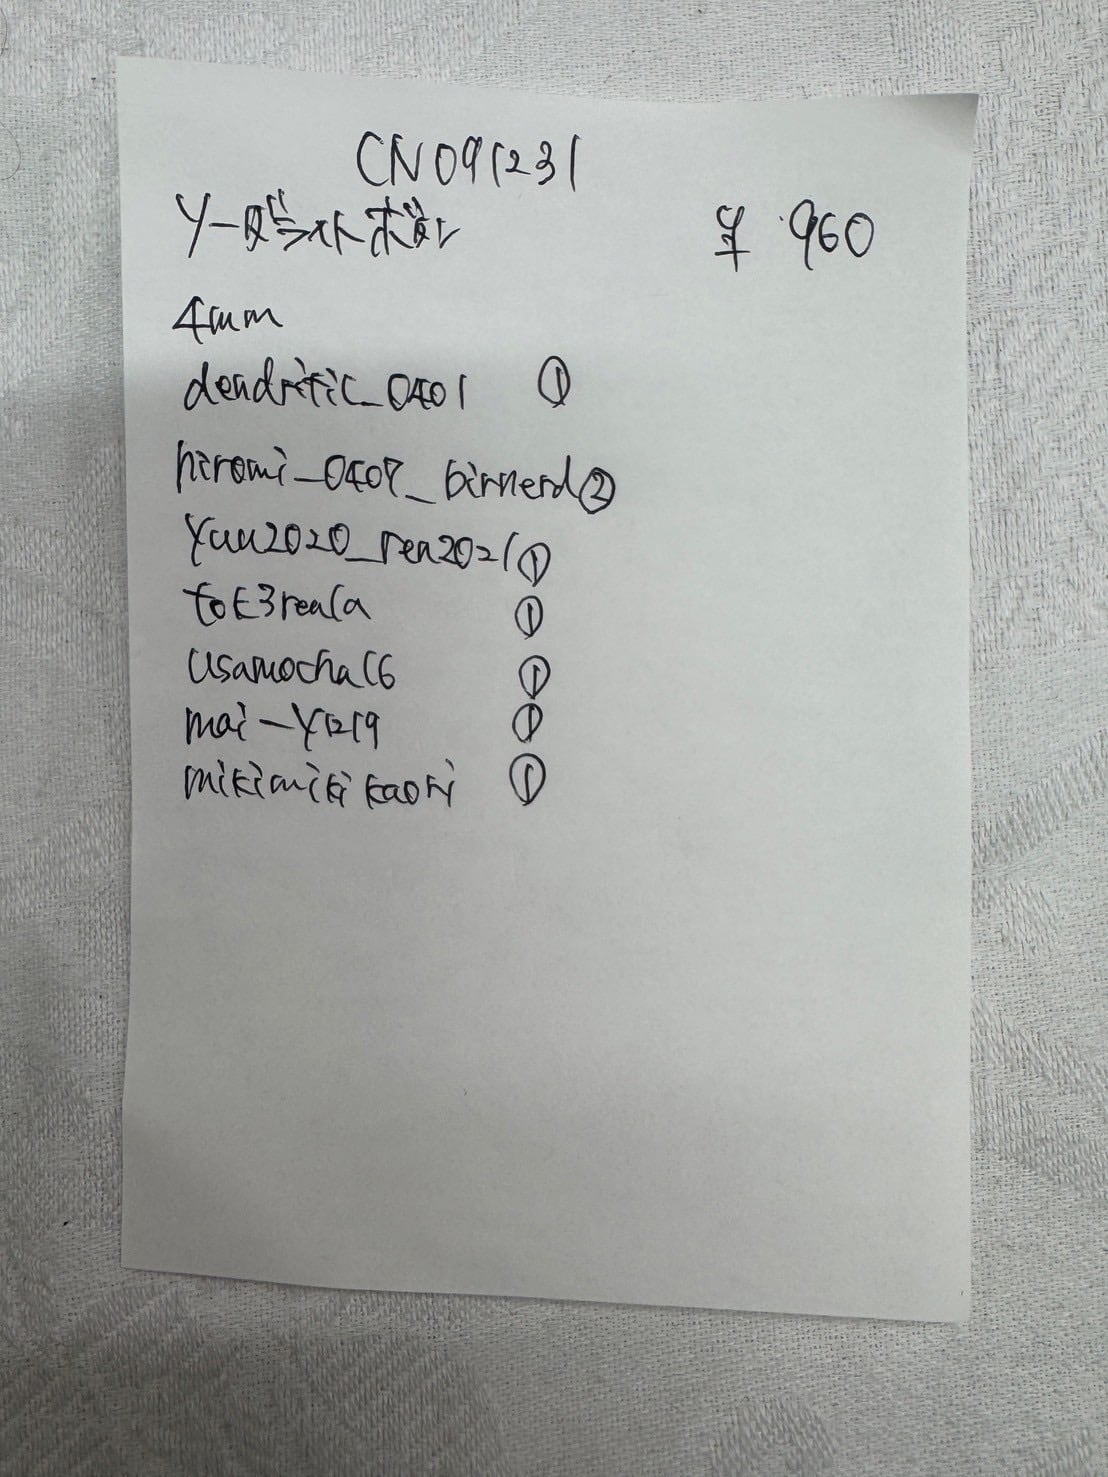 CN091231
¥ 960
4mm
dendritic_0401 ①
hiromi_0407_birnerd②
Yuu2020_ren2021①
tot3reala ①
usamocha16 ①
mai-y1219 ①
mikimiki kaori ①